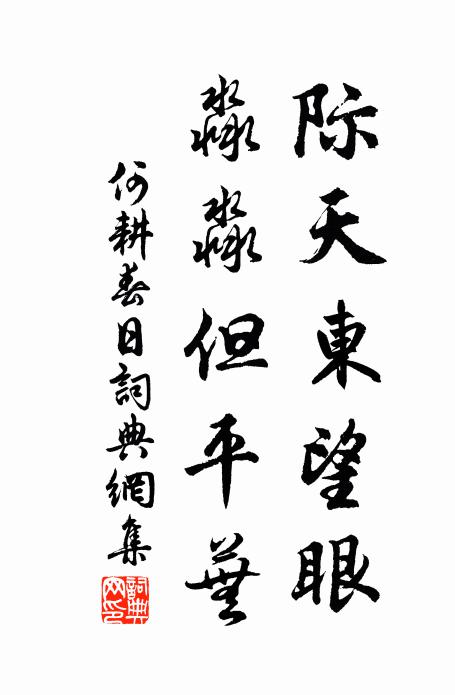 际天東望眼
淼淼但平蕪
何耕春日詞典網集
詞典網印